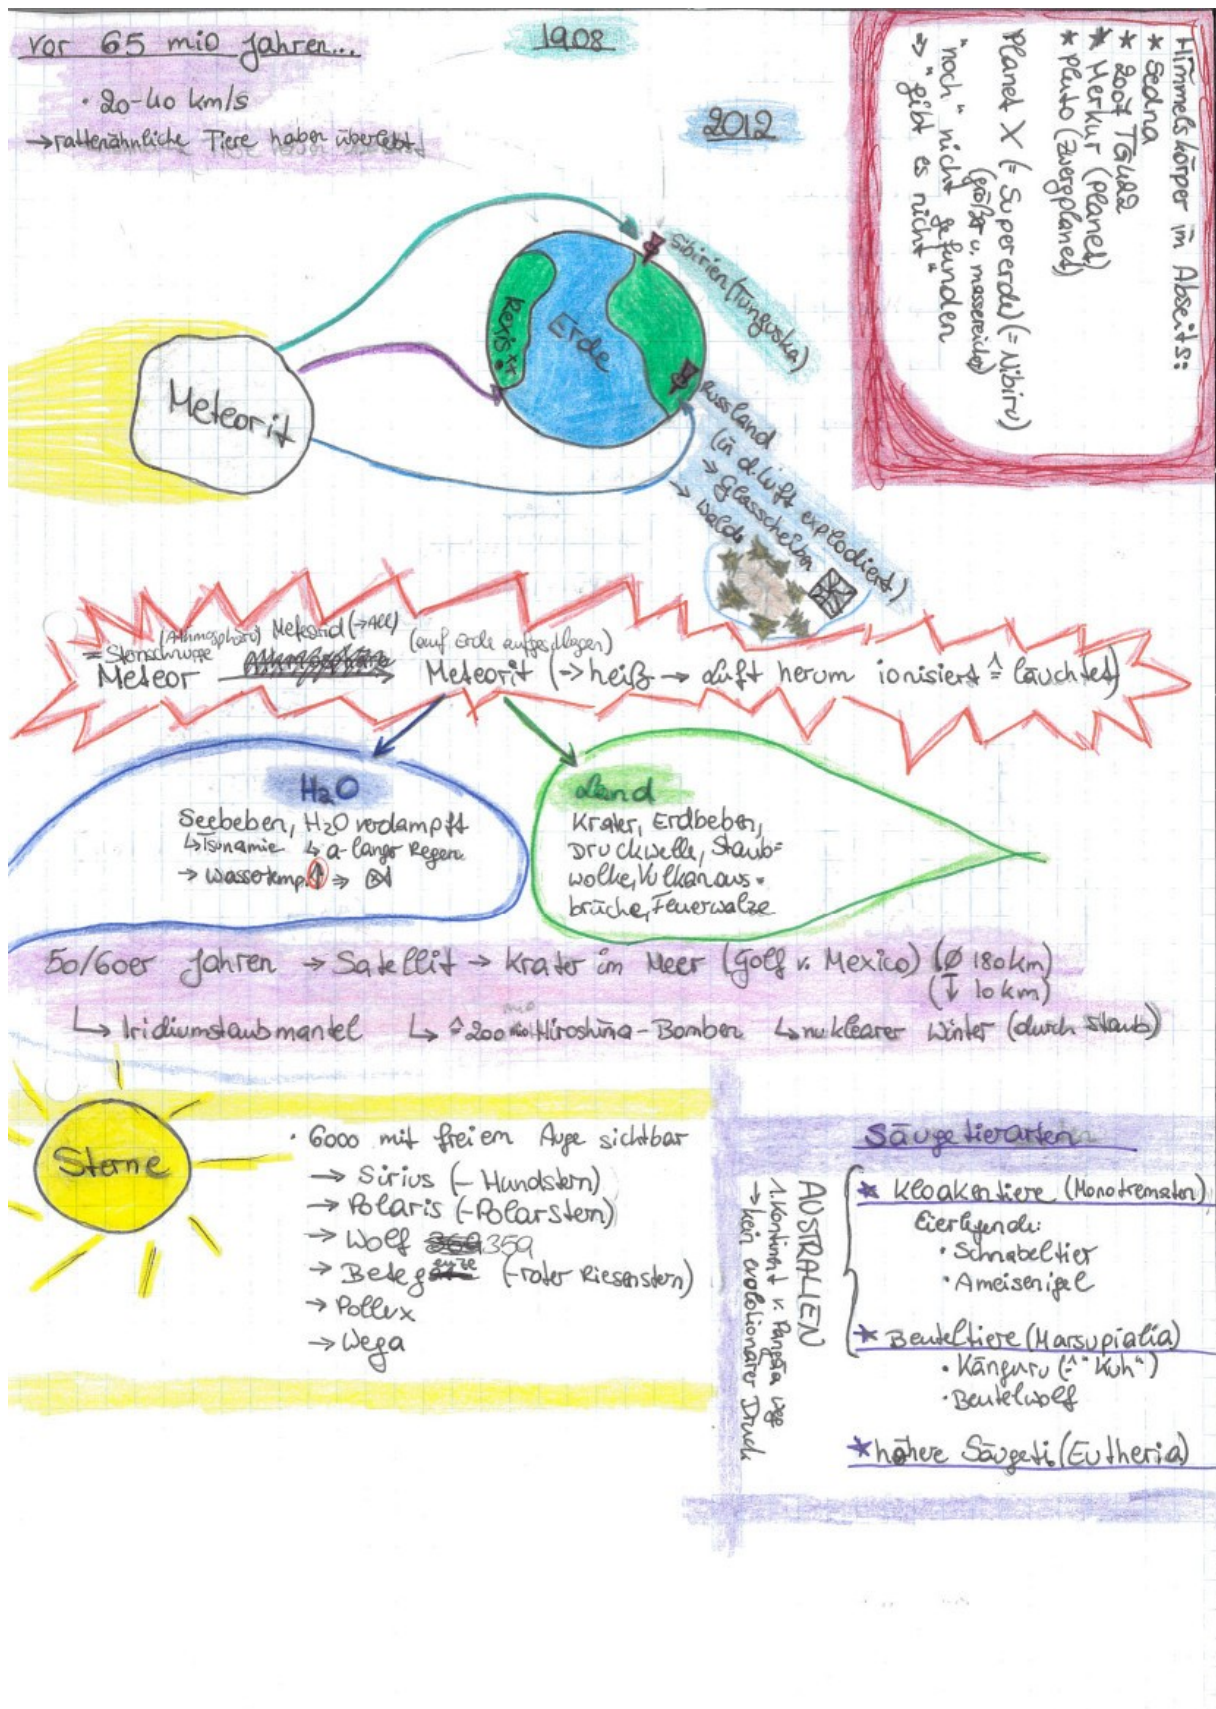 vor 65 mio Jahren...
• 20-40 km/s
→ rattenähnliche Tiere haben überlebt
1908
2012
Himmelskörper im Abseits:
* Sedna
* 2007 TG422
* Merkur (Planet)
* Pluto (Zwergplanet)
Planet X (= Supererde) (= Nibiru)
(größer u. massereicher)
"noch" nicht gefunden
→ "gibt es nicht"
Sibirien (Tunguska)
Erde
Meteorit
Russland
(in d. Luft explodiert)
→ Glasscheiben
→ Wald
(Athmosphäre) Meteorid (→ All) (auf Erde aufgeschlagen)
= Sternschnuppe
Meteor → Meteorit (→ heiß → Luft herum ionisiert ≙ läuchtet)
H2O
Seebeben, H2O verdampft
↳ Tsunamie ↳ a-langer Regen
→ Wassertemp. ↑ ⇒
Land
Krater, Erdbeben,
Druckwelle, Staub=
wolke, Vulkanaus=
brüche, Feuerwalze
50/60er Jahren → Satellit → Krater im Meer (Golf v. Mexico) (Ø 180km)
(↧ 10km)
↳ Iridiumstaubmantel ↳ ≙ 200 mio Hiroshima-Bomben ↳ nuklearer Winter (durch Staub)
Sterne
• 6000 mit freiem Auge sichtbar
→ Sirius (- Hundstern)
→ Polaris (-Polarstern)
→ Wolf 359
→ Betegeuze (-roter Riesenstern)
→ Pollux
→ Wega
AUSTRALIEN
1. Kontinent v. Pangäa weg
→ kein evolotionärer Druck
Säugetierarten
* Kloakentiere (Monotrematen)
Eierlegende:
• Schnabeltier
• Ameisenigel
* Beuteltiere (Marsupialia)
• Känguru (≙ "Kuh")
• Beutelwolf
* höhere Säugeti. (Eutheria)